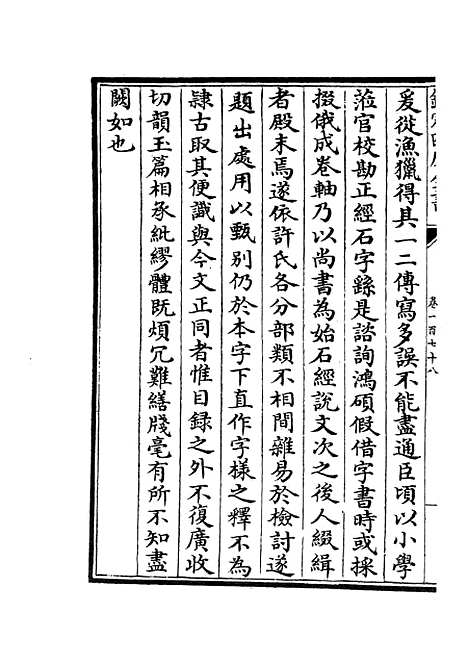 欽定四庫全書
卷一百七十八
爰從漁獵得其一二傳寫多誤不能盡通臣頃以小學
蒞官校勘正經石字繇是諮詢鴻碩假借字書時或採
掇俄成卷軸乃以尚書為始石經說文次之後人綴緝
者殿末焉遂依許氏各分部類不相間雜易於檢討遂
題出處用以甄别仍於本字下直作字様之釋不為
隷古取其便識與今文正同者惟目録之外不復廣收
切韻玉篇相承紕繆體既煩冗難繕牋毫有所不知盡
闕如也